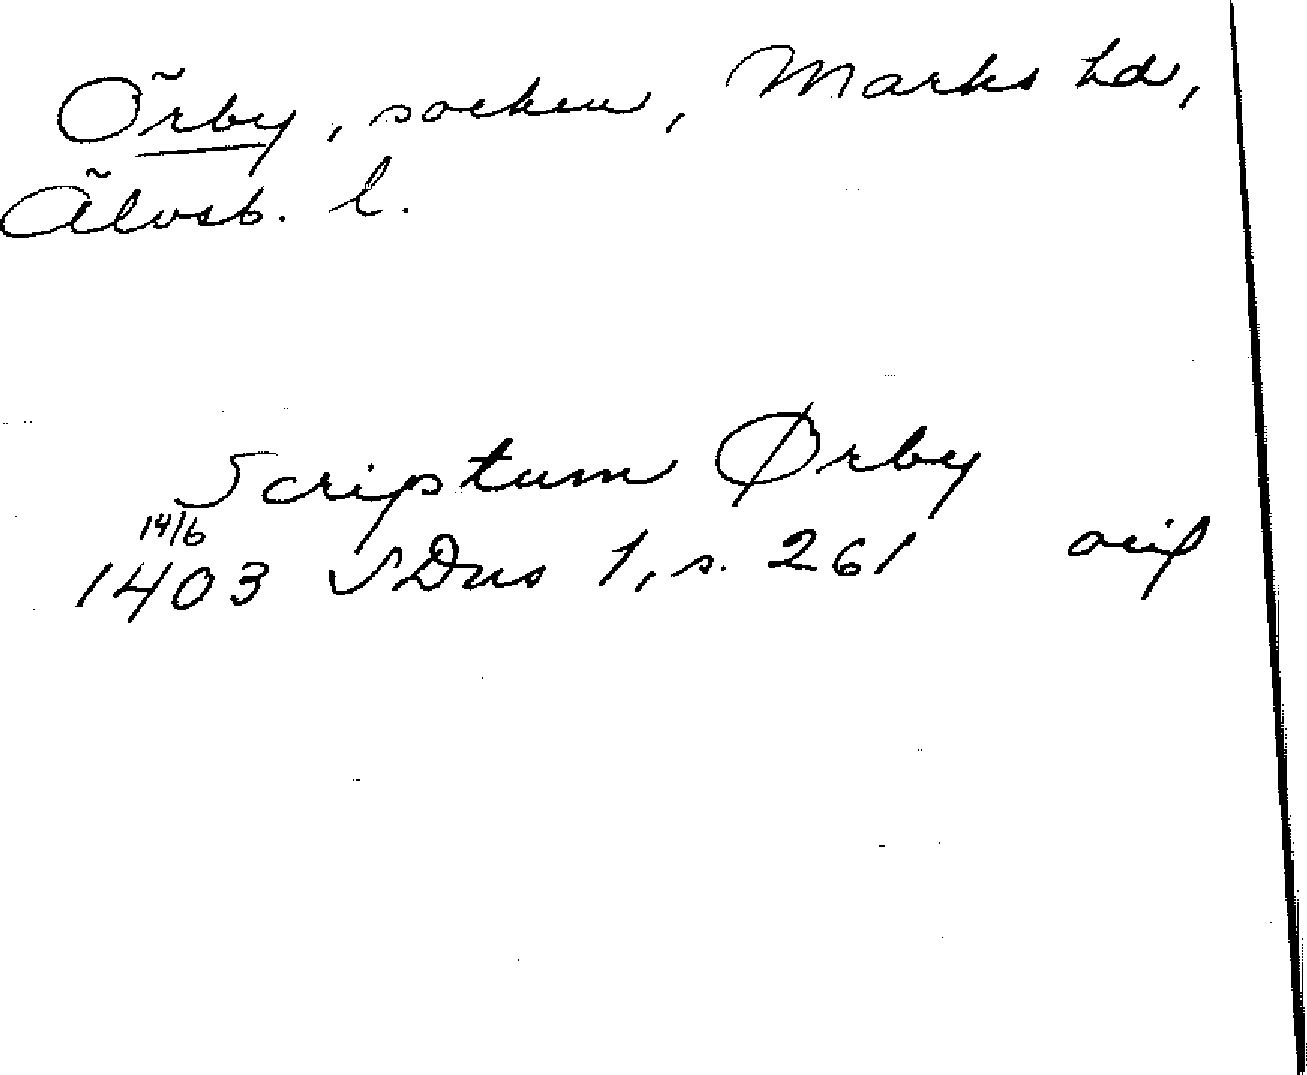 Örby, socken, Marks hd,
Älvsb. l.
Scriptum Ørby
14/6
1403 SDns 1, s. 261